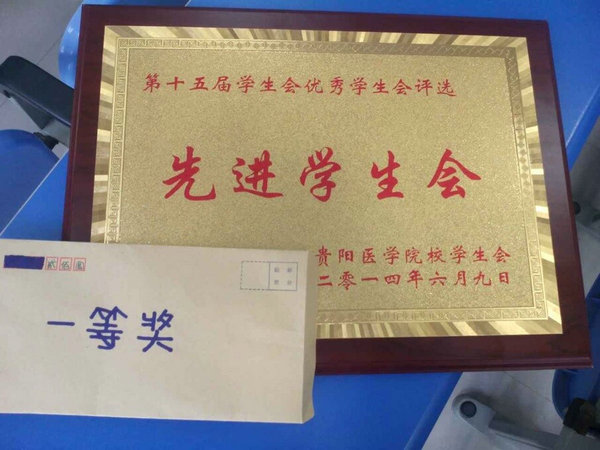 第十五届学生会优秀学生会评选
先进学生会
贵阳医学院校学生会
二零一四年六月九日
贰佰圆
一等奖